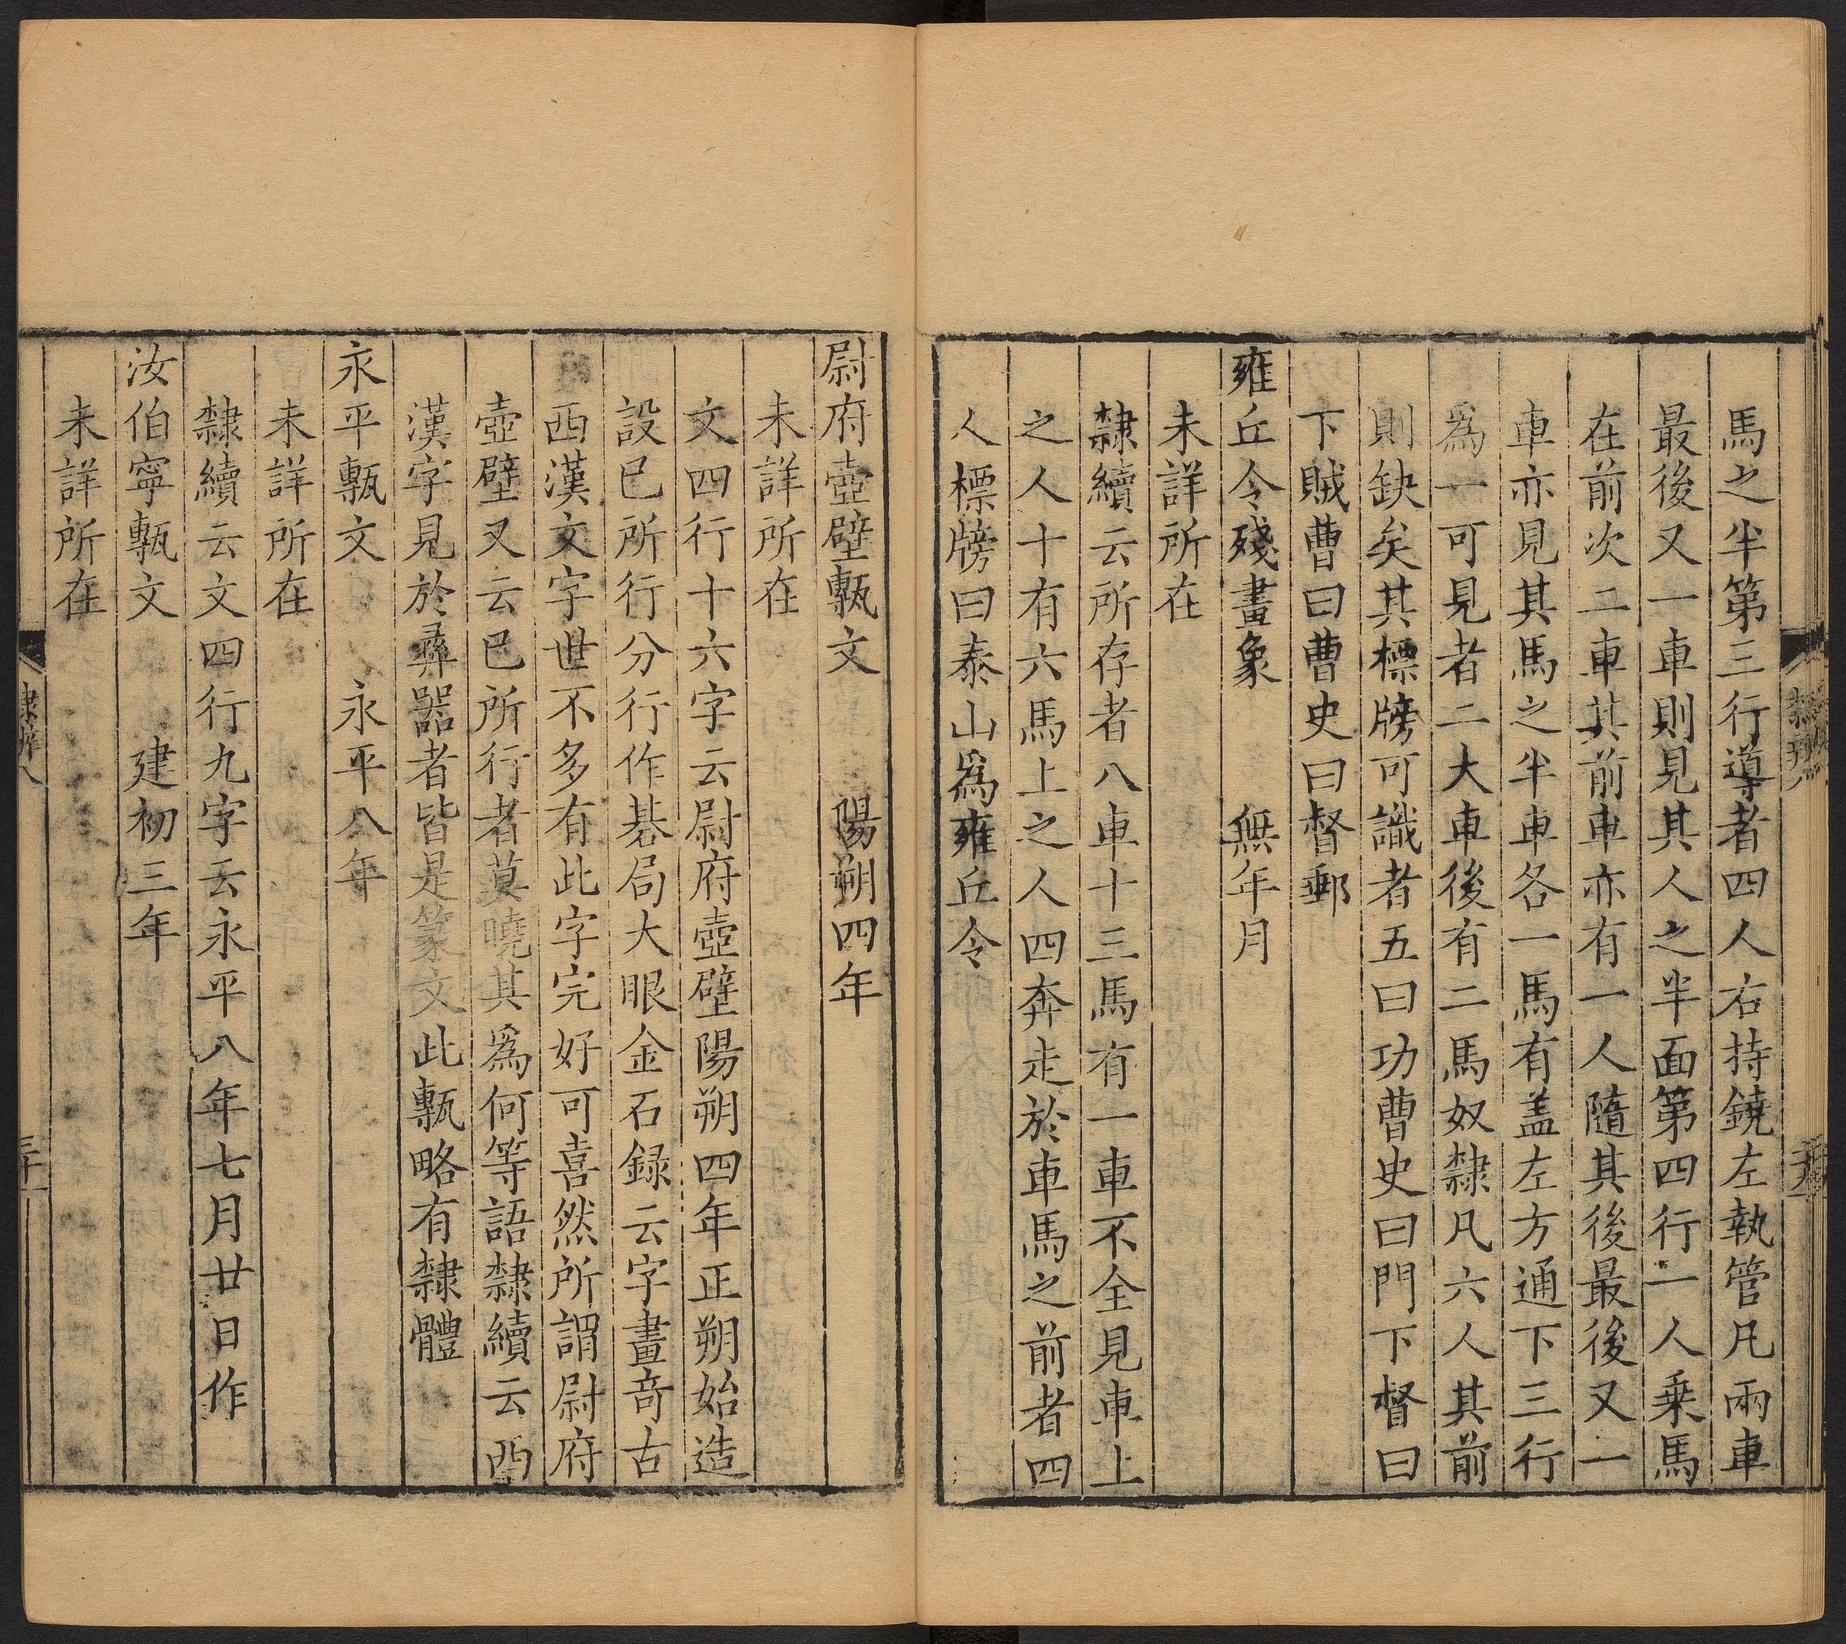 馬之半第三行導者四人右持鐃左執管凡兩車
最後又一車則見其人之半面第四行一人乗馬
在前次二車其前車亦有一人隨其後最後又一
車亦見其馬之半車各一馬有盖左方通下三行
爲一可見者二大車後有二馬奴隸凡六人其前
則缺矣其標牓可識者五曰功曹史曰門下督曰
下賊曹曰曹史曰督郵
雍丘令殘畫象 無年月
未詳所在
隸續云所存者八車十三馬有一車不全見車上
之人十有六馬上之人四奔走於車馬之前者四
人標牓曰泰山爲雍丘令
尉府壺壁甎文 陽朔四年
未詳所在
文四行十六字云尉府壺壁陽朔四年正朔始造
設已所行分行作碁局大眼金石録云字畫竒古
西漢文字世不多有此字完好可喜然所謂尉府
壺壁又云已所行者莫曉其爲何等語隸續云西
漢字見於彞器者皆是篆文此甎略有隸體
永平甎文 永平八年
未詳所在
隸續云文四行九字云永平八年七月廿日作
汝伯寧甎文 建初三年
未詳所在
隸辨八
三十一